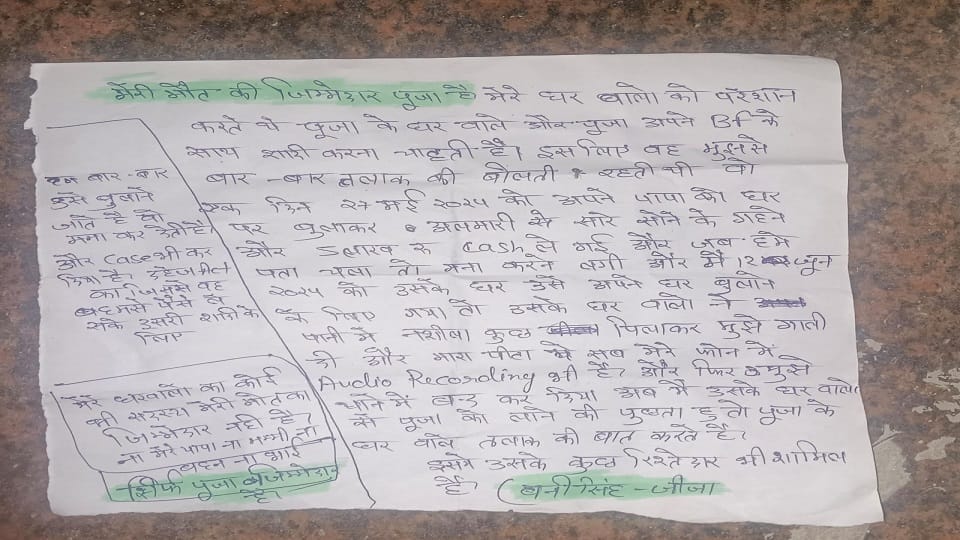 मेरी मौत की जिम्मेदार पूजा है मेरे घर वालो को परेशान
करते थे पूजा के घर वाले और पूजा अपने BF के
साथ शादी करना चाहती है। इसलिए वह मुझसे
बार-बार तलाक की बोलती रहती थी वो
एक दिन 27 मई 2025 को अपने पापा को घर
पर बुलाकर अलमारी से सारे सोने के गहने
और 5 लाख रु cash ले गई और जब हमे
पता चला तो मना करने लगी और मैं 12 जून
2025 को उसके घर उसे अपने घर बुलाने
के लिए गया तो उसके घर वालो ने
पानी में नशीला कुछ पिलाकर मुझे गाली
दी और मारा पीटा ये सब मेरे फोन में
Audio Recording भी है। और फिर मुझे
थाने में बन्द कर दिया अब मैं उसके घर वालो
से पूजा को लाने की पुछता हु तो पूजा के
घर वाले तलाक की बात करते है।
इसमे उसके कुछ रिश्तेदार भी शामिल
है। (बनी सिंह - जीजा
हम बार-बार
उसे बुलाने
जाते है वो
मना कर देती है।
और case भी कर
दिया है। दहेज
का जिससे वह
हमसे पैसे ले
सके दूसरी शादी के
लिए
मेरे घरवालो का कोई
भी सदस्य मेरी मौत का
जिम्मेदार नही है।
ना मेरे पापा ना मम्मी ना
बहन ना भाई
सिर्फ पूजा जिम्मेदार
है।